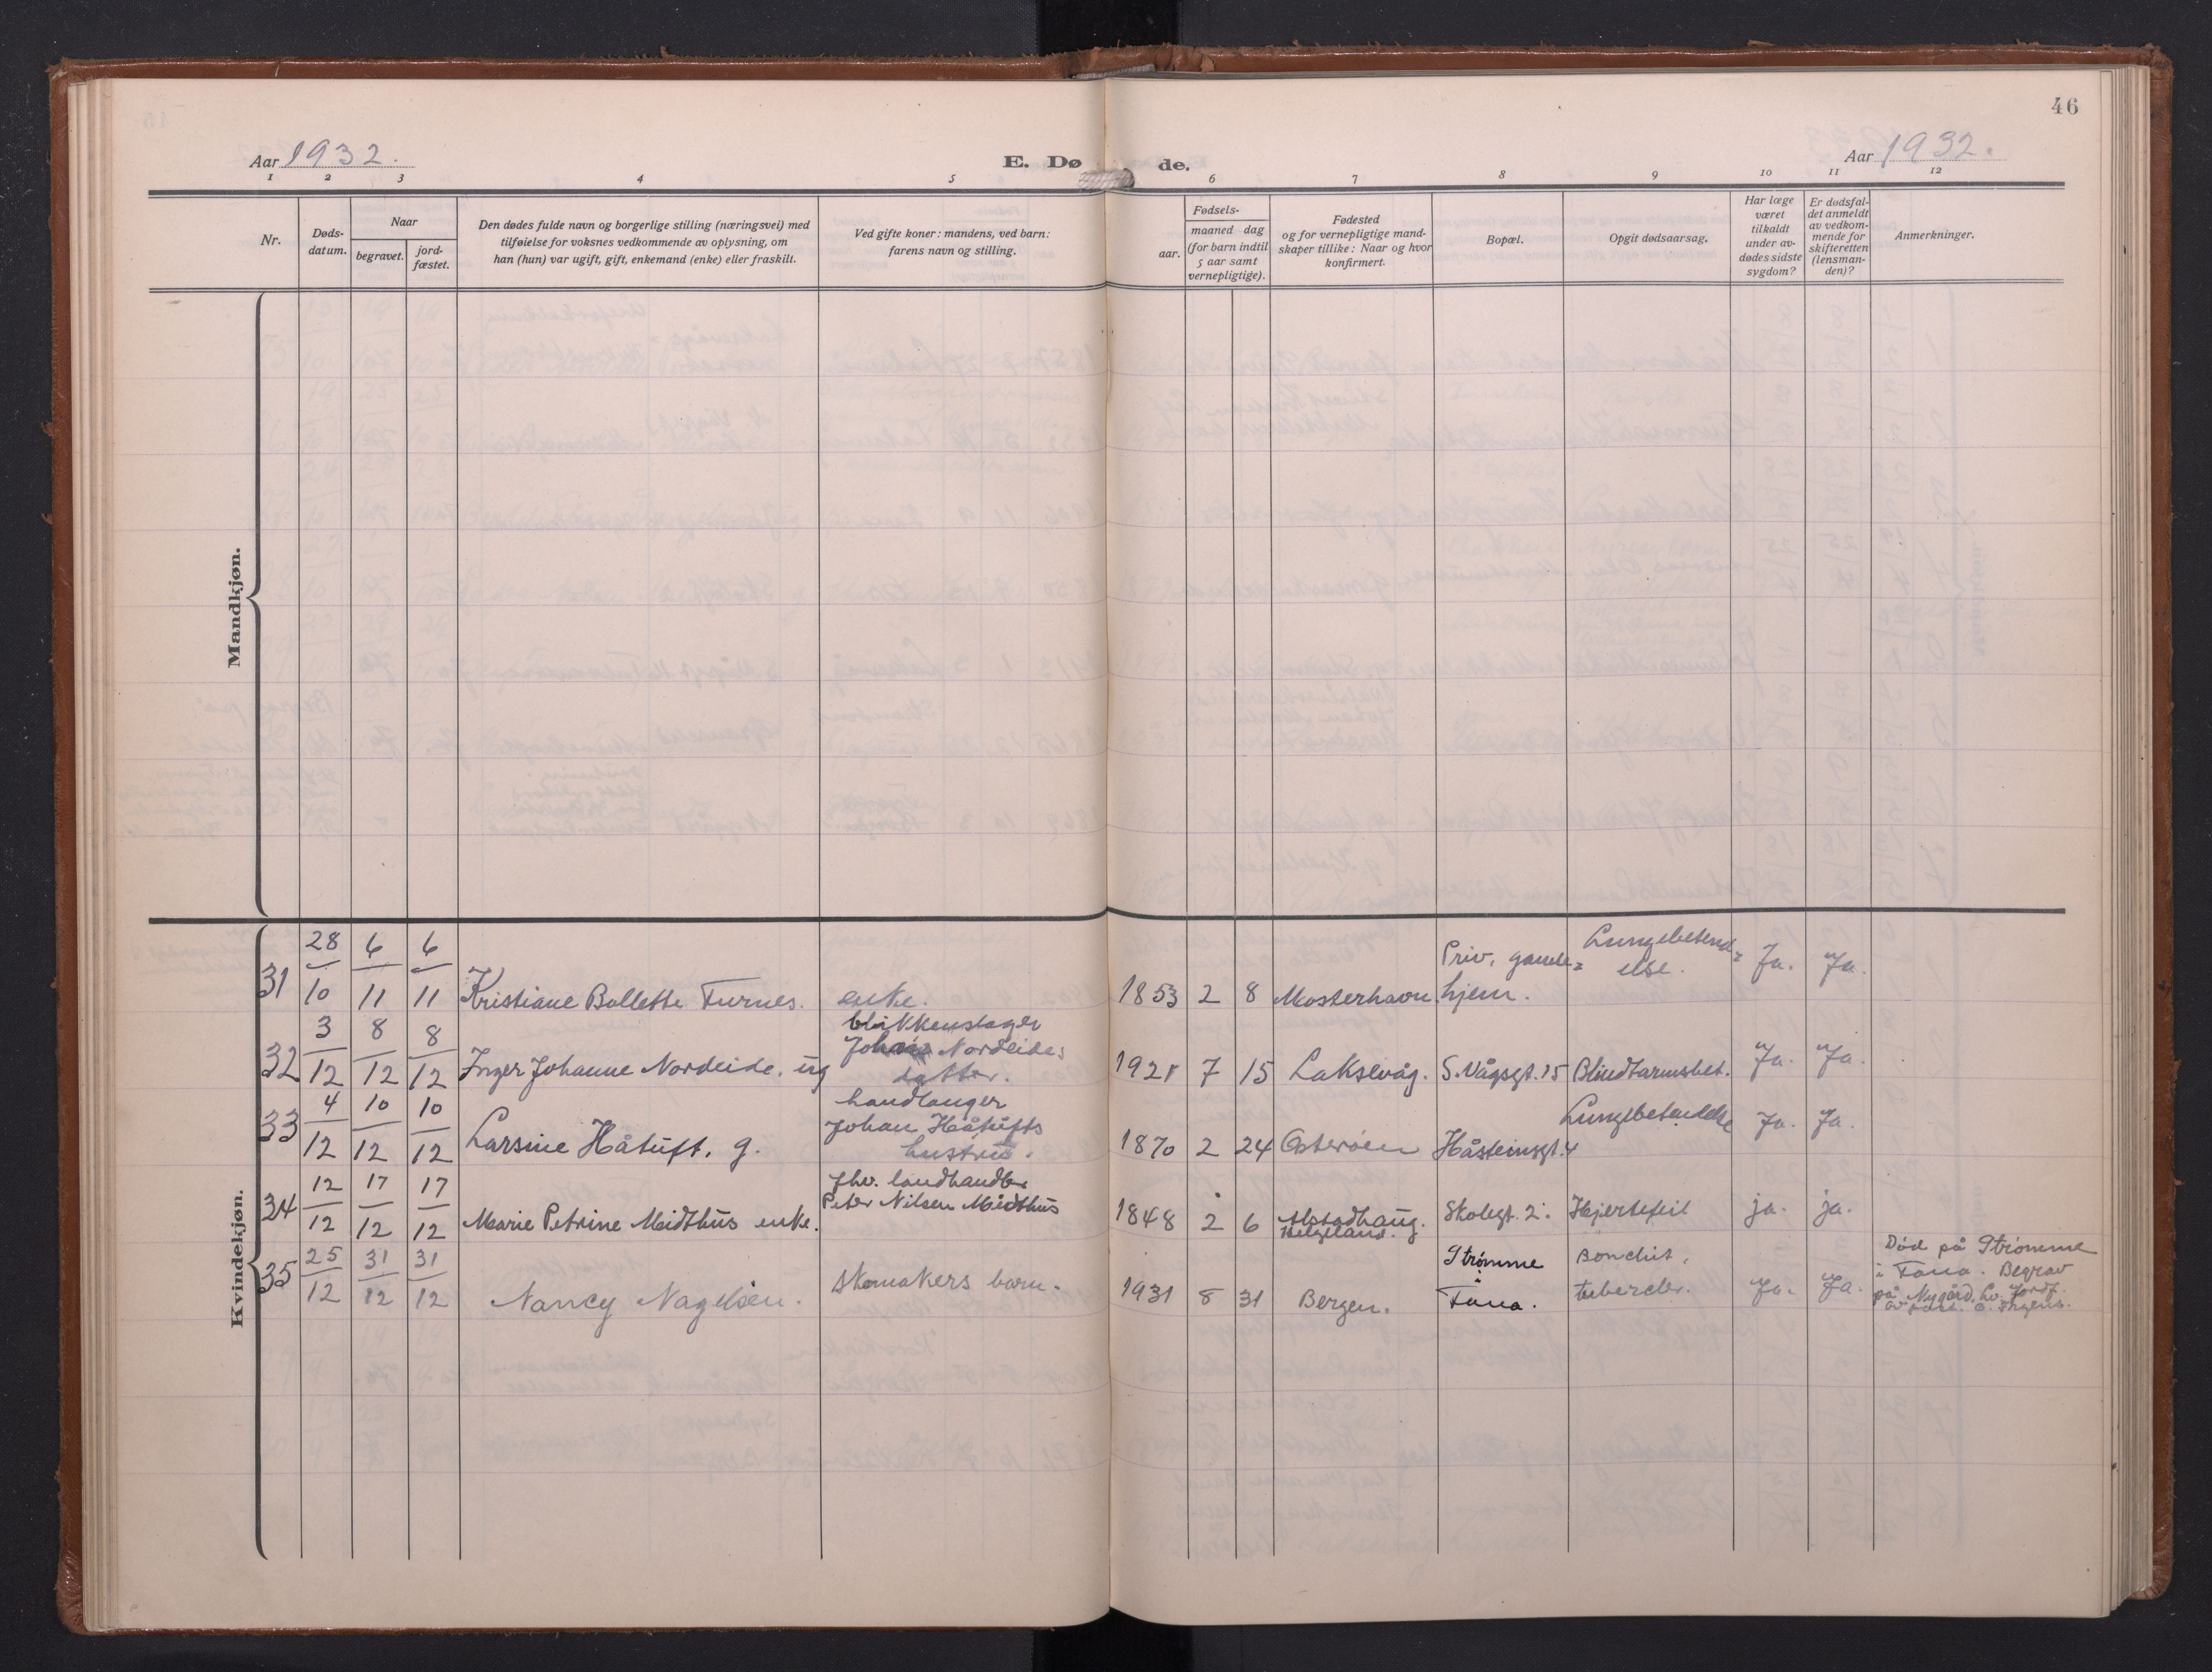 46
Aar 1932.
E. Dø de.
Aar 1932.
1 2 3 4 5 6 7 8 9 10 11 12
Nr.
Døds-
datum.
Naar
begravet.
jord-
fæstet.
Den dødes fulde navn og borgerlige stilling (næringsvei) med
tilføielse for voksnes vedkommende av oplysning, om
han (hun) var ugift, gift, enkemand (enke) eller fraskilt.
Ved gifte koner: mandens, ved barn:
farens navn og stilling.
Fødsels-
aar.
maaned dag
(for barn indtil
5 aar samt
vernepligtige).
Fødested
og for vernepligtige mand-
skaper tillike: Naar og hvor
konfirmert.
Bopæl.
Opgit dødsaarsag.
Har læge
været
tilkaldt
under av-
dødes sidste
sygdom?
Er dødsfal-
det anmeldt
av vedkom-
mende for
skifteretten
(lensman-
den)?
Anmerkninger.
Mandkjøn.
Kvindekjøn.
28 6 6
31 10 11 11 Kristiane Bollette Furnes. enke.
1853 2 8 Mosterhavn
Priv. gamle=
hjem.
Lungebetend=
else.
Ja. Ja.
3 8 8
32 12 12 12 Inger Johanne Nordeide. ug
blikkenslager
Johan Nordeides
datter.
1921 7 15 Laksevåg. S. Vågsgt. 15 Blindtarmsbet. Ja. Ja.
4 10 10
33 12 12 12 Larsine Håtuft. g.
handlanger
Johan Håtufts
hustru.
1870 2 24 Osterøen Håsteinsgt. 4 Lungebetendelse Ja. Ja.
12 17 17
34 12 12 12 Marie Petrine Midthus enke.
fhv. landhandler
Peter Nilsen Midthus
1848 2 6 Alstadhaug.
Helgeland.
Skolegt. 2. Hjertefeil ja. ja.
25 31 31
35 12 12 12 Nancy Nagelsen. skomakers barn.
1931 8 31 Bergen.
Strømme
i
Fana.
Bonchit.
tubercler.
Ja. Ja.
Død på Strømme
i Fana. Begrav
på Nygård. Jordf.
av